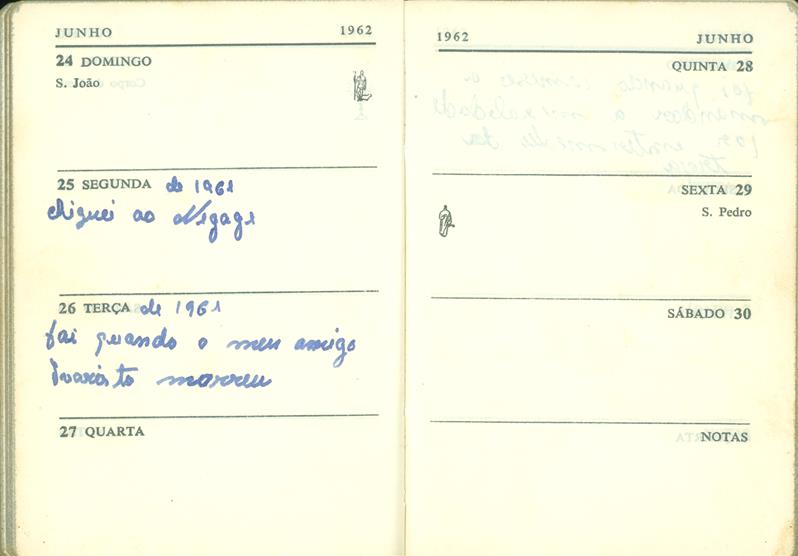 JUNHO 1962
24 DOMINGO
S. João
25 SEGUNDA de 1961
chiguei ao Nigage
26 TERÇA de 1961
foi quando o meu amigo
Ivaristo morreu
27 QUARTA
1962 JUNHO
QUINTA 28
SEXTA 29
S. Pedro
SÁBADO 30
NOTAS